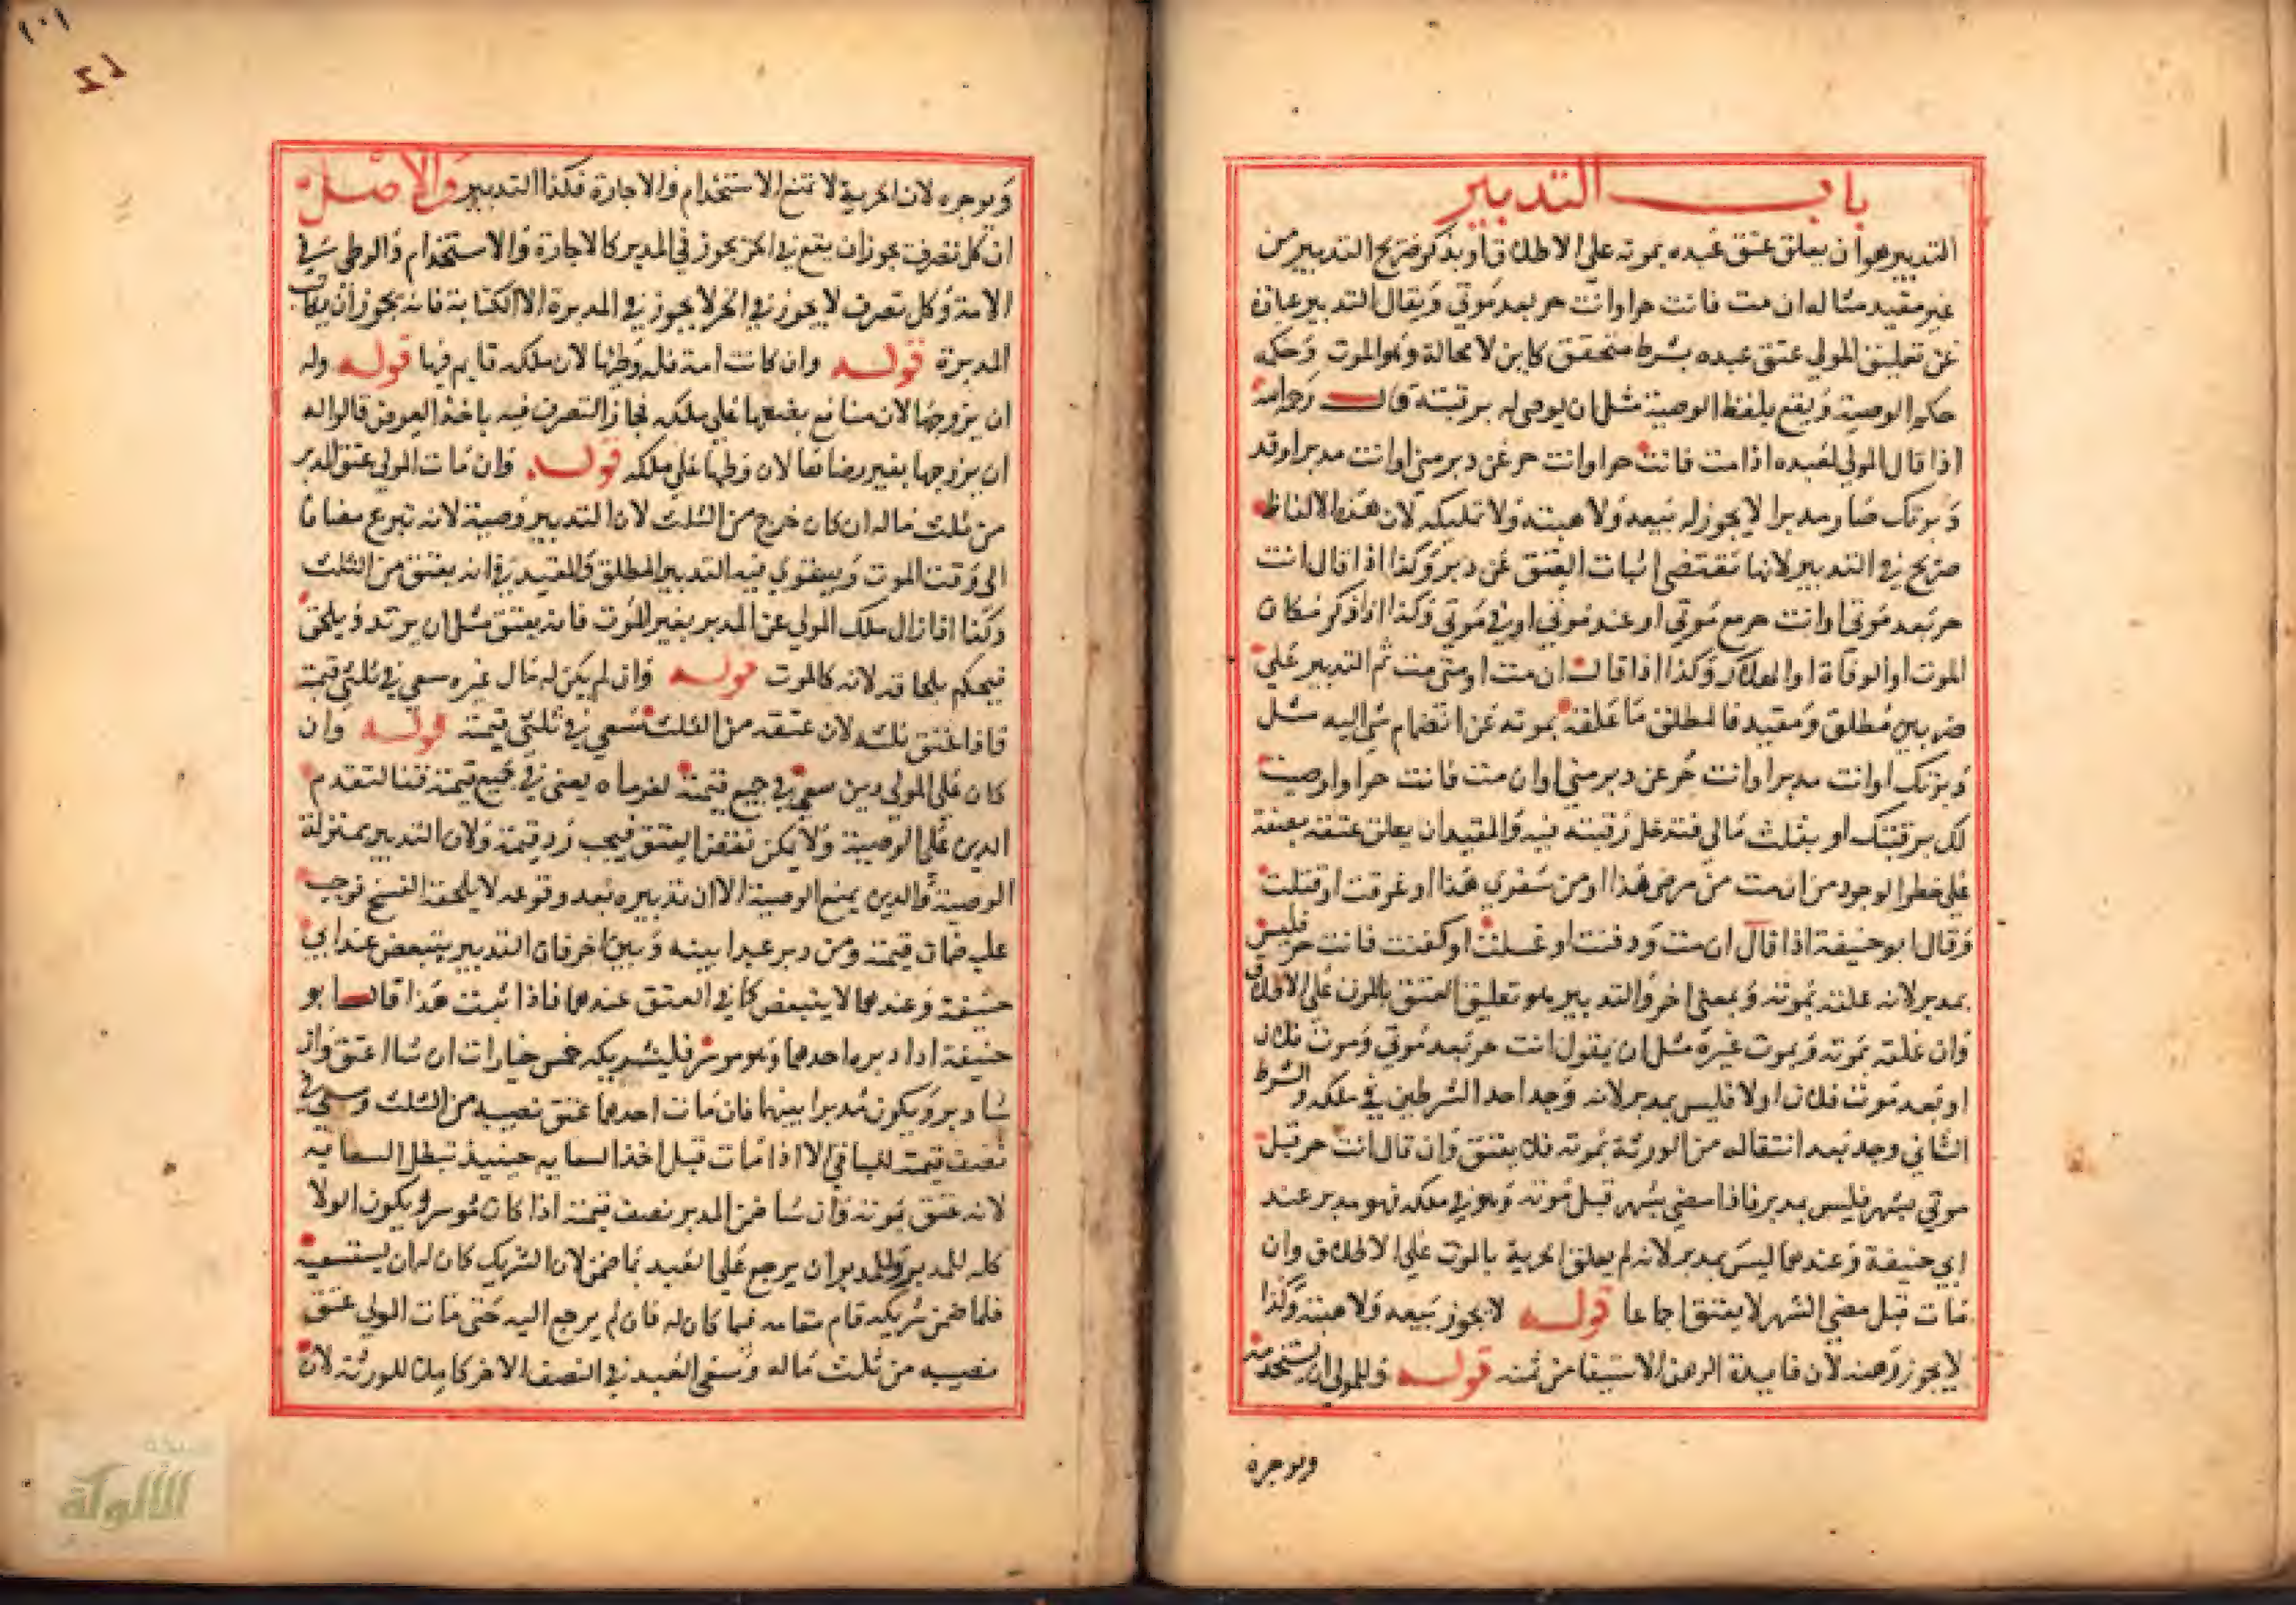 باب التدبير
التدبير هو ان يعلق عتق عبده بموته علي الاطلاق او بذكر صريح التدبير من
غير مقيد مثاله ان مت فانت حر او انت حر بعد موتي ويقال التدبير عبارة
عن تعليق المولي عتق عبده بشرط متحقق كاين لا محالة وهو الموت وحكمه
حكم الوصية ويقع بلفظ الوصية مثل ان يوصي له برقبته قال رحمه الله
اذا قال المولي لعبده اذا مت فانت حر او انت حر عن دبر مني او انت مدبر او قد
دبرتك صار مدبرا لا يجوز له بيعه ولا هبته ولا تمليكه لان هذه الالفاظ
صريح في التدبير لانها تقتضي اثبات العتق عن دبر وكذا اذا قال انت
حر بعد موتي او انت حر مع موتي او عند موتي او في موتي وكذا اذا ذكر مكان
الموت او الوفاة او الهلاك وكذا اذا قال ان مت او متي مت ثم التدبير علي
ضربين مطلق ومقيد فالمطلق ما علقه بموته من انضمام شي اليه مثل
دبرتك او انت مدبر او انت حر عن دبر مني او ان مت فانت حر او اوصيت
لك برقبتك او بثلث مالي فتدخل رقبته فيه والمقيد ان يعلق عتقه بصفة
علي خطر الوجود من ان مت من مرضي هذا او من سفري هذا او غرقت او قتلت
وقال ابو حنيفة اذا قال ان مت ودفنت او غسلت او كفنت فانت حر فليس
بمدبر لانه علقه بموته وبمعني اخر والتدبير هو تعليق العتق بالموت علي الاطلاق
وان علقه بموته وبموت غيره مثل ان يقول انت حر بعد موتي وموت فلان
او بعد موت فلان اولا فليس بمدبر لانه وجد احد الشرطين في ملكه والشرط
الثاني وجد بعد انتقاله من الورثة بموته فلا يعتق وان قال انت حر قبل
موتي بشهر فليس بمدبر فاذا مضي شهر قبل موته وهو في ملكه فهو مدبر عند
ابي حنيفة وعندهما ليس بمدبر لانه لم يعلق الحرية بالموت علي الاطلاق وان
مات قبل مضي الشهر لا يعتق اجماعا قوله لا يجوز بيعه ولا هبته وكذا
لا يجوز رهنه لان فايدة الرهن الاستيفا من ثمنه قوله وللمولي ان يستخدمه
ويوجره
١٠١
ويوجره لان الحرية لا تمنع الاستخدام والاجارة فكذا التدبير والاصل
ان كل تصرف يجوز ان يقع في الحر يجوز في المدبر كالاجارة والاستخدام والوطي في
الامة وكل تصرف لا يجوز في الحر لا يجوز في المدبرة الا الكتابة فانه يجوز ان يكاتب
المدبرة قوله وان كانت امة فله وطيها لان ملكه قايم فيها قوله وله
ان يزوجها لان منافع بضعها علي ملكه فجاز التصرف فيه باخذ العوض قالوا له
ان يزوجها بغير رضاها لان وطيها علي ملكه قوله وان مات المولي عتق المدبر
من ثلث ماله ان كان خرج من الثلث لان التدبير وصية لانه تبرع مضاف
الي وقت الموت ويستوي فيه التدبير المطلق والمقيد في انه يعتق من الثلث
وكذا اذا زال ملك المولي عن المدبر بغير الموت فانه يعتق مثل ان يرتد ويلحق
فيحكم بلحاقه لانه كالموت قوله وان لم يكن له مال غيره سعي في ثلثي قيمته
فاذا عتق ثلثه لان عتقه من الثلث سعي في ثلثي قيمته قوله وان
كان علي المولي دين سعي في جميع قيمته لغرماه يعني في جميع قيمته قنا لتقدم
الدين علي الوصية ولا يمكن نقض العتق فيجب رد قيمته ولان التدبير بمنزلة
الوصية والدين يمنع الوصية الا ان تدبيره بعد وقوعه لا يلحقه الفسخ فوجب
عليه ضمان قيمته ومن دبر عبدا بينه وبين اخر فان التدبير يتبعض عند ابي
حنيفة وعندهما لا يتبعض كما في العتق عندهما فاذا ثبت هذا قال ابو
حنيفة اذا دبره احدهما وهو موسر فلشريكه خمس خيارات ان شا اعتق وان
شا دبر ويكون مدبرا بينهما فان مات احدهما عتق نصيبه من الثلث وسعي في
نصف قيمته للباقي الا اذا مات قبل اخذ السعايه حينيذ تبطل السعايه
لانه عتق بموته وان شا ضمن المدبر نصف قيمته اذا كان موسرا ويكون الولا
كله للمدبر وللمدبر ان يرجع علي العبد بما ضمن لان الشريك كان له ان يستسعيه
فلما ضمن شريكه قام مقامه فيما كان له فان لم يرجع اليه حتي مات المولي عتق
نصيبه من ثلث ماله وسعي العبد في النصف الاخر كاملا للورثة لان
الألوكة